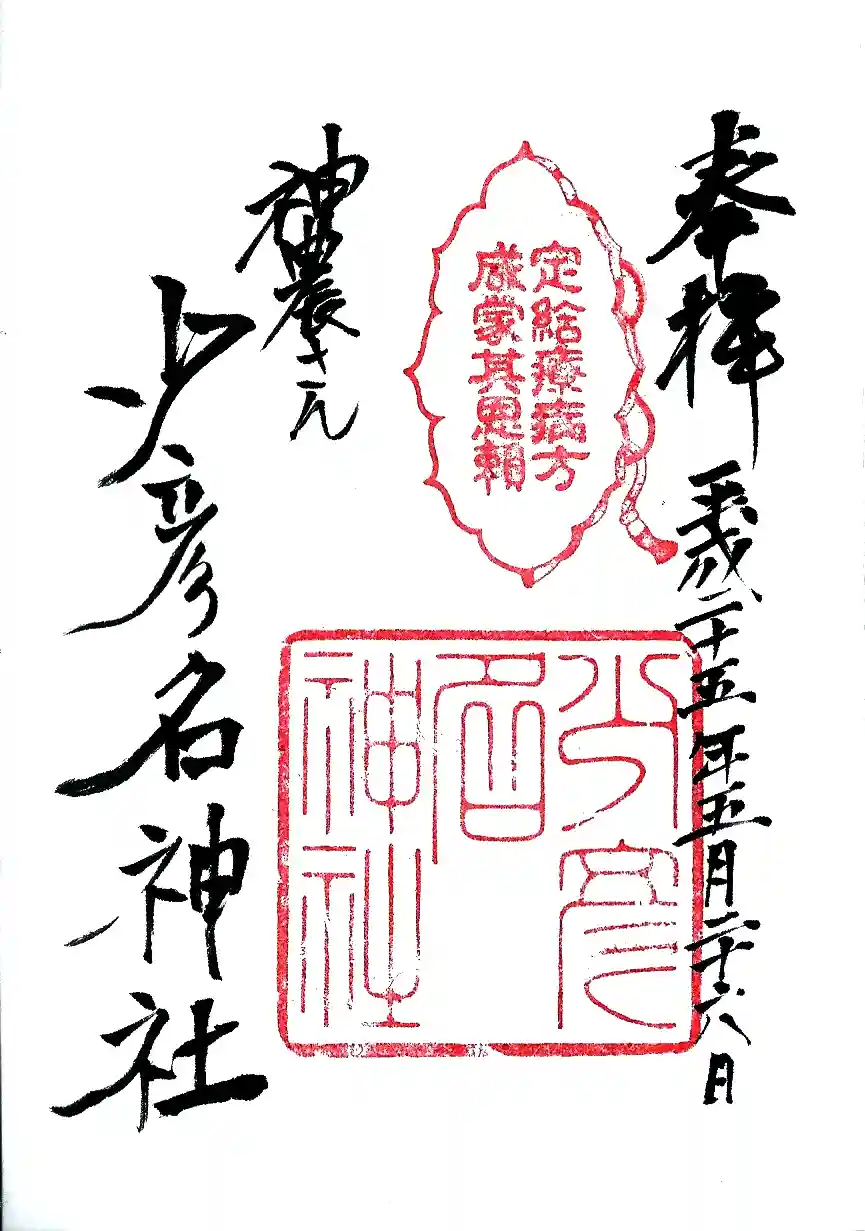 奉拝
平成二十五年五月二十六日
定給療病方
咸蒙其恩頼
少彦
名
神社
神農さん
少彦名神社